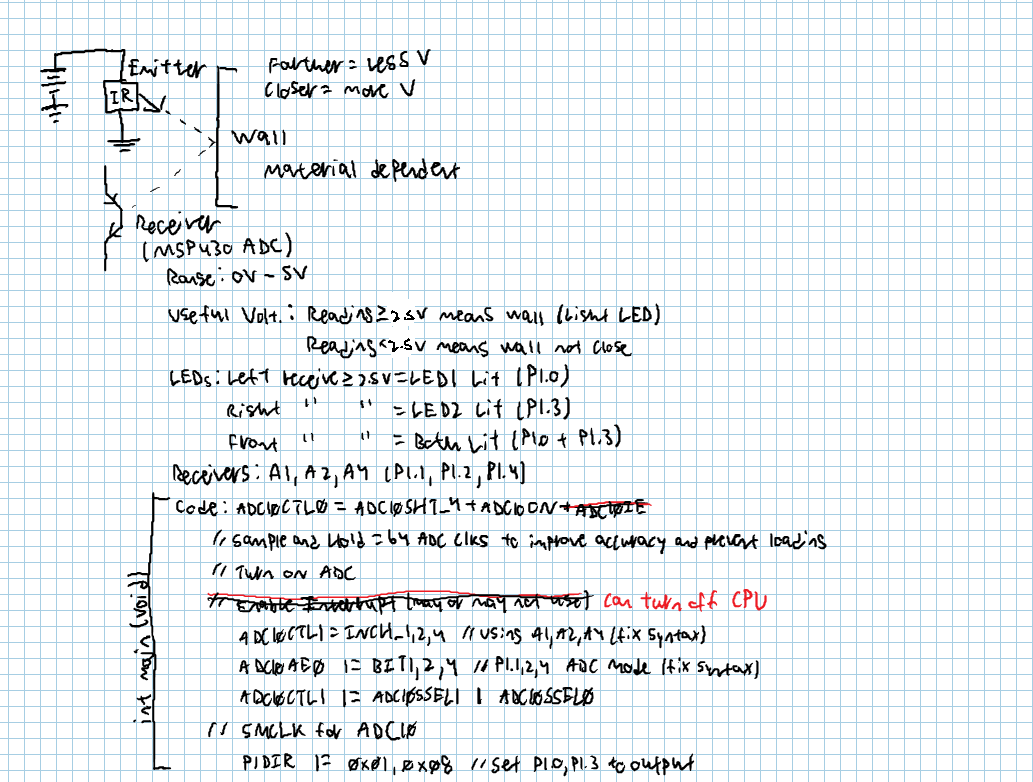 Emitter
IR
Farther = Less V
Closer = more V
Wall
Material dependent
Receiver
(MSP430 ADC)
Range: 0V - 5V
Useful Volt.: Reading ≥ 2.5V means wall (Light LED)
Reading < 2.5V means wall not close
LEDs: Left receive ≥ 2.5V = LED1 Lit (P1.0)
Right " " = LED2 Lit (P1.3)
Front " " = Both Lit (P1.0 + P1.3)
Receivers: A1, A2, A4 [P1.1, P1.2, P1.4]
Code: ADC10CTL0 = ADC10SHT_4 + ADC10ON + ADC10IE
// Sample and Hold = 64 ADC Clks to improve accuracy and prevent loading
// Turn on ADC
// Enable Interrupt (may or may not use) Can turn off CPU
ADC10CTL1 = INCH_1,2,4 // using A1, A2, A4 (fix syntax)
ADC10AE0 |= BIT1,2,4 // P1.1,2,4 ADC mode (fix syntax)
ADC10CTL1 |= ADC10SSEL1 | ADC10SSEL0
// SMCLK for ADC10
P1DIR |= 0x01, 0x08 // set P1.0, P1.3 to output
int main(void)